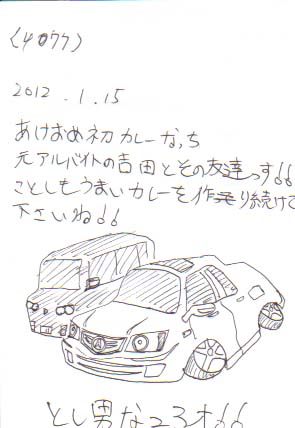 (4077)
2012.1.15
あけおめ初カレーなっち
元アルバイトの吉田とその友達っす!!
ことしもうまいカレーを作り続けて
下さいね!!
とし男な23才!!